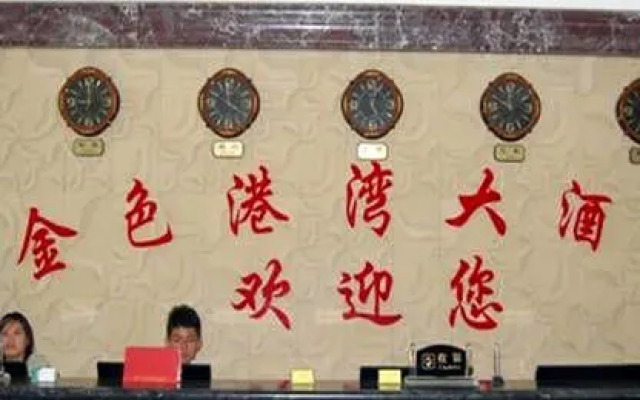 金色港湾大酒
欢迎您
收银